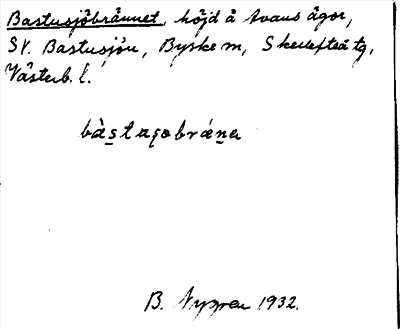 Bastusjöbrännet, höjd å Avans ägor,
SV. Bastusjön, Byske m, Skellefteå tg,
Västerb. l.
bàs̲taʂobrǽn̲a
B. Nygren 1932.